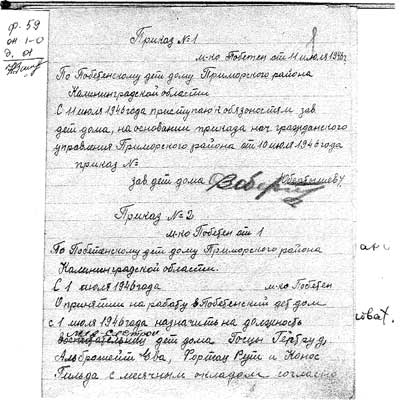 ф. 59
оп 1-0
д. 01
Приказ № 1
м-ко Побетен от 11 июля 1946г
По Побетенскому дет дому Приморского района
Калининградской области
С 11 июля 1946 года приступаю к обязоностям зав.
дет дома, на основании приказа нач. гражданского
управления Приморского района от 10 июля 1946 года
приказ №
зав. дет дома
Приказ № 2
м-ко Побетен от 1
По Побетенскому дет дому Приморского района
Калининградской области.
С 1 июля 1946 года м-ко Побетен
О принятии на работу в Побетенский дет дом
с 1 июля 1946 года назначить на должность
мед-сестрой
воспитательниц дет дома Госун Гертруд,
Альброшейт Ева, Фортаг Рут и Конос
Гильда с месячным окладом согласно